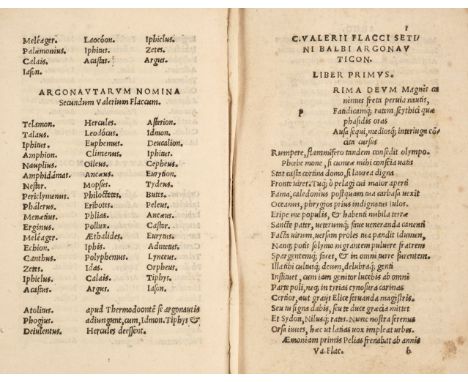 Meleager. Laocoon. Iphiclus.
Palæmonius. Iphitus. Zetes.
Calais. Acastus. Argus.
Iason.
ARGONAVTARVM NOMINA
Secundum Valerium Flaccum.
Telamon. Hercules. Asterion.
Talaus. Leodocus. Idmon.
Iphitus. Euphemus. Deucalion.
Amphion. Climenus. Iphitus.
Nauplius. Oileus. Cepheus.
Amphidámas. Ancæus. Eurytion.
Nestor. Mopsus. Tydeus.
Periclymenus. Philoctetes. Butes.
Phalerus. Eribotes. Peleus.
Menœtius. Phlias. Ancæus.
Erginus. Pollux. Castor.
Meleager. Æthalides. Eurytus.
Echion. Iphis. Admetus.
Canthus. Polyphemus. Lynceus.
Zetes. Idas. Orpheus.
Iphiclus. Calais. Tiphys.
Acastus. Argus. Iason.
Atolius. apud Thermodoonte se argonautis
Phogius. adiungent, cum, Idmon. Tiphys &
Deiulentus. Hercules deessent.
C. VALERII FLACCI SETI/
NI BALBI ARGONAV
TICON.
LIBER PRIMVS.
p
RIMA DEVM Magnis ca
nimus freta peruia nautis,
Fatidicamq; ratem, scythici quæ
phasidis oras
Ausa sequi, mediosq; inter iuga cō
cita cursus
Rumpere, flammifero tandem consedit olympo.
Phœbe mone, si cumææ mihi conscia uatis
Stat casta cortina domo, si laurea digna
Fronte uiret. Tuq; ò pelagi cui maior aperti
Fama, caledonius postquam tua carbasa uexit
Oceanus, phrygios prius indignatus iulos.
Eripe me populis, & habenti nubila terræ
Sancte pater, ueterumq; faue ueneranda canenti
Facta uirum, uersam proles tua pandit idumen,
Sancq; potis solymo nigrantem puluere fratrem
Spargentemq; faces, & in omni turre furentem.
Ille tibi cultusq; deum, delubraq; genti
Instituet, cum iam genitor lucebis ab omni
Parte poli, neq; in tyrias cynosura carinas
Certior, aut graijs Elice seruanda magistris.
Seu tu signa dabis, seu te duce græcia mittet
Et Sydon, Nilusq; rates. Nunc nostra serenus
Orsa iuues, hæc ut latias uox impleat urbes.
Æmoniam primis Pelias frenabat ab annis
Va. Flac. b